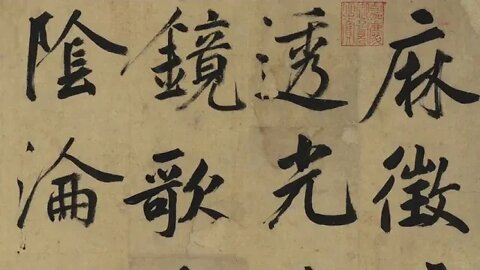 麻徵
透光
鏡歌
陰淪